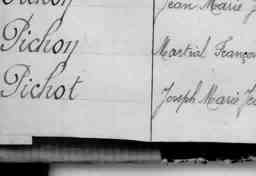 Jean Marie
Pichon Martial François
Pichot Joseph Marie